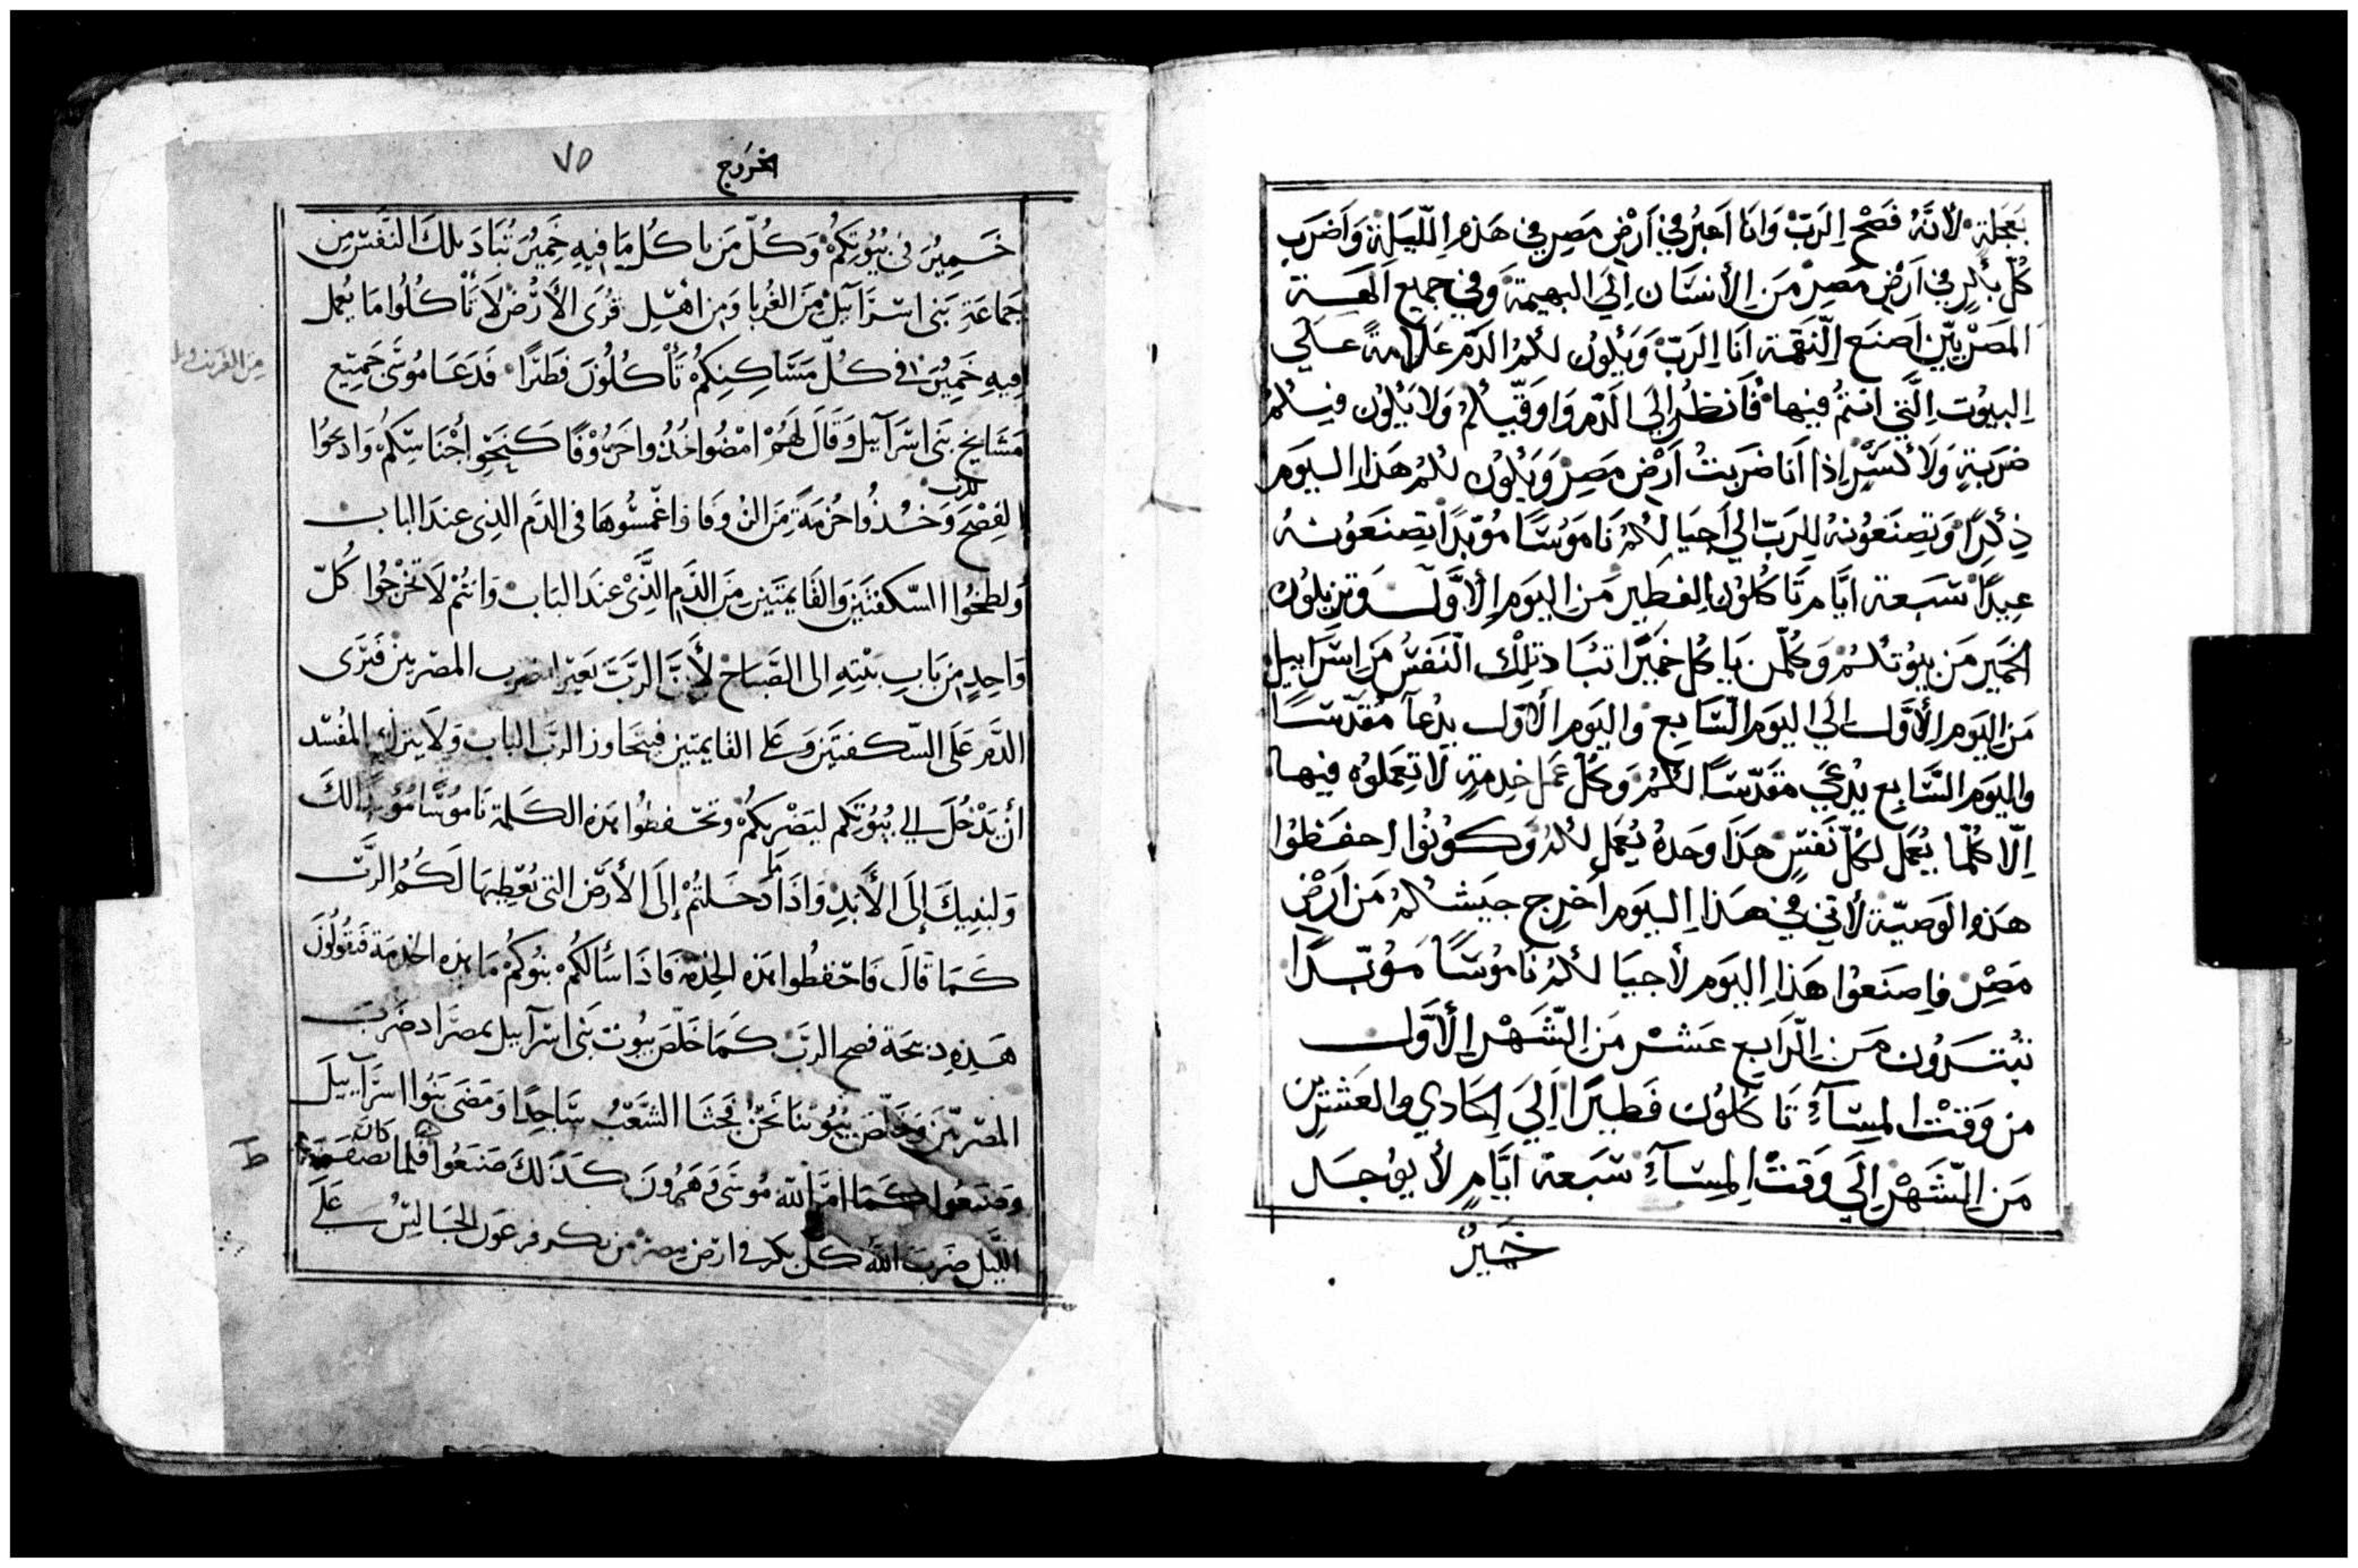 بعَجَلةٍ لأنّهُ فَصْح الرَبّ وَانَا اَعبُر في اَرْض مَصِر في هَذه اللّيلَة وَاَضرَب
كُلّ بكر في اَرْض مَصِرْ مَن الأنسَان اِلَي البهيمة وَفي جميع اَلهَة
المَصْريّين اَصنَع النّقمة اَنَا الرَبّ وَيَكون لكمُ الدَم عَلَامةً عَلَي
البيوت الَّتي انتمُ فيهَا فَانظُر اِلَي الدَم وَاوَقّيكم وَلا يَكون فيكمُ
ضَربَةٍ وَلا كَسْرٍ اِذا اَنا ضَربتُ اَرْض مَصِر وَيَكون لكمُ هَذا اليَوم
ذِكرًا وَتصِنَعُونهُ للرَبّ الي اَحيَا لكمُ نَامَوُسًا مُوّبدًا تصِنَعوُنهُ
عِيدًا سَبعة ايَّام تَاكلوُن الفَطِير مَن اليَوم الأوَّل وتزيلون
الخَمِير مَن بيوُتكمُ وَكُلّمن يَاكل خَميًرا تبَاد تلِكْ النّفسْ مَن اِسْرَاييل
مَن اليَوم الأوَّل الَي اليَوم السَّابع وَاليَوم الأوّل يدُعَآ مُقَدّسًا
وَاليَوم السَّابع يدُعَي مقَدّسًا لكمُ وَكُل عَمَل خِدمةٍ لَا تعِمَلوُه فيهَا
اِلّا كُلّمَا يُعمَل لكلّ نَفسٍ هَذَا وَحدهُ يُعمَل لكمُ وَكوُنوُا احفَظوا
هَذه الوَصيّة لأنّي في هَذا اليَوم اَخرِج جيَشكمُ مَن اَرْض
مَصِر فاصِنَعوا هَذا اليَوم لأجيَا لكمُ نَاموُسًا مَوُبّدًا
تبُتَدوُن مَن الرّابع عَشَر مَن الشّهْر الأوَّل
من وَقتْ المسَآءْ تَاكلوُن فَطيرًا اِلَي الحَادي والعَشرين
مَن الشّهْر اِلَي وَقتْ المسَآءْ سَبعة ايَّامٍ لأ يوُجَد
خَميرُ
الخروج
٧٥
خَمِيرُ فى بُيُوتِكُمْ وَكُلّ مَن ياكُل مَا فِيهِ خَمِيرُ تُبَاد تلكَ النَّفسْ مِن
جَمَاعَةِ بَنى اسْرَآييلْ مِنَ الغُربا وَمِن اهْل قُرَى الأَرْضْ لَا تَأْكُلُوا مَا يُعمل
فِيهِ خَمِيُرْ فى كُلّ مَسَاكِنِكُمْ تَأْكُلُونَ فَطيًرا فَدَعَا مُوسَى جَمِيْع
مَشَايخ بَنى اسْرَآييل وَقَالَ لَهُمْ امْضُوا خُذُوا خَرُوْفًا كَنَحْوِ أجْنَاسِكُمْ وَاذبحُوا
للرب
الفِصْحَ وَخُذُوا حُزمَةً مِنَ الزوفا واغْمسُوهَا فى الدَّم الذِى عِندَ الباب
وَلطخُوا السّكفتَيَن وَالقَايمتَيَن مِنَ الدَّم الَّذِىْ عنَد البَاب وَانتُمْ لَا تَخْرُجُوا كُلّ
وَاحِدٍ مِن بَابِ بَيْتِهِ الى الصَّبَاحْ لأَنَّ الرَّبَّ يَعبر ليضرب المصريين فيَرَى
الدَّم عَلَى السّكفتَيَن وَعلى القايمتين فيتجاوز الرَّب الباب وَلَا يترك المُفْسّد
أنْ يَدْخُلَ الى بُيُوُتِكُم ليَضْربكُمْ وتحفظُوا هَذه الكلمة نَامُوسًا مُؤبدًا لكَ
وَلبَنِيكَ إِلَى الأَبَدِ وَاذَا مَا دَخَلتُمْ إِلَى الأَرْضْ التى يُعطِيهَا لَكُمُ الرَّبُّ
كَمَا قَالَ فَاحْفظُوا هَذه الخِدْمَة فَاذَا سَأَلكُمْ بنُوكُمْ مَا هَذه الخدمَة فَتقُولُونَ
هَذِهِ ذبيحَة فصح الربّ كَمَا خَلّصَ بيُوت بَنى اسرَآييل بمصر اذ ضَرَبَ
المصْريّين وَخَلّصَ بُيُوتنَا نَحنْ فجَثَا الشَّعْبُ سَاجِدًا وَمَضَى بَنُوا اسرَآييلَ
وَصَنعُوا كَمَا امَر الله مُوسَى وَهَرُونَ كَذَلكَ صَنعُوا فلما كان نصف
اللّيل ضَربَ الله كلّ بكر فى ارْض مِصرْ من بكر فرعَون الجَالسُ عَلَى
ط